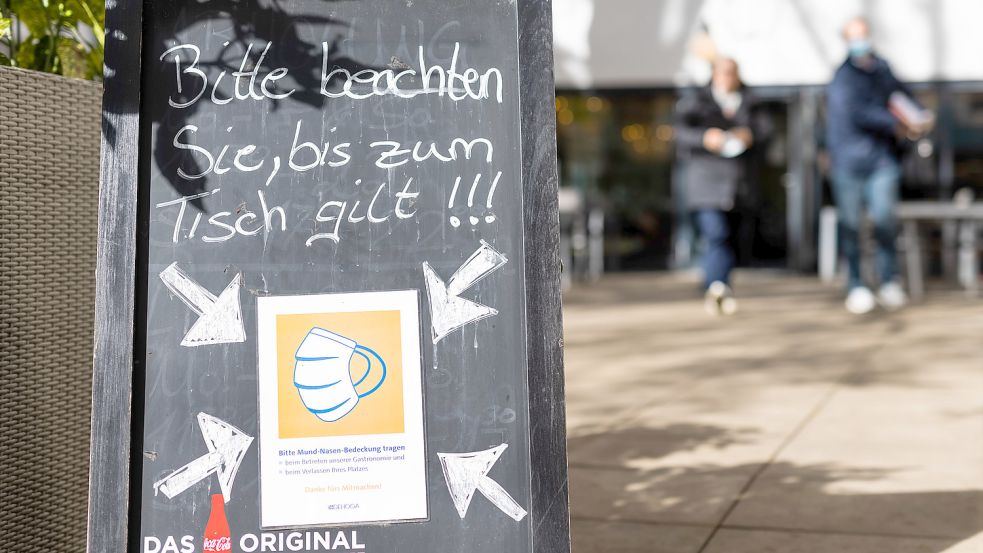 Bitte beachten
Sie, bis zum
Tisch gilt !!!
Bitte Mund-Nasen-Bedeckung tragen
beim Betreten unserer Gastronomie und
beim Verlassen Ihres Platzes
Danke fürs Mitmachen!
DEHOGA
DAS Coca-Cola ORIGINAL